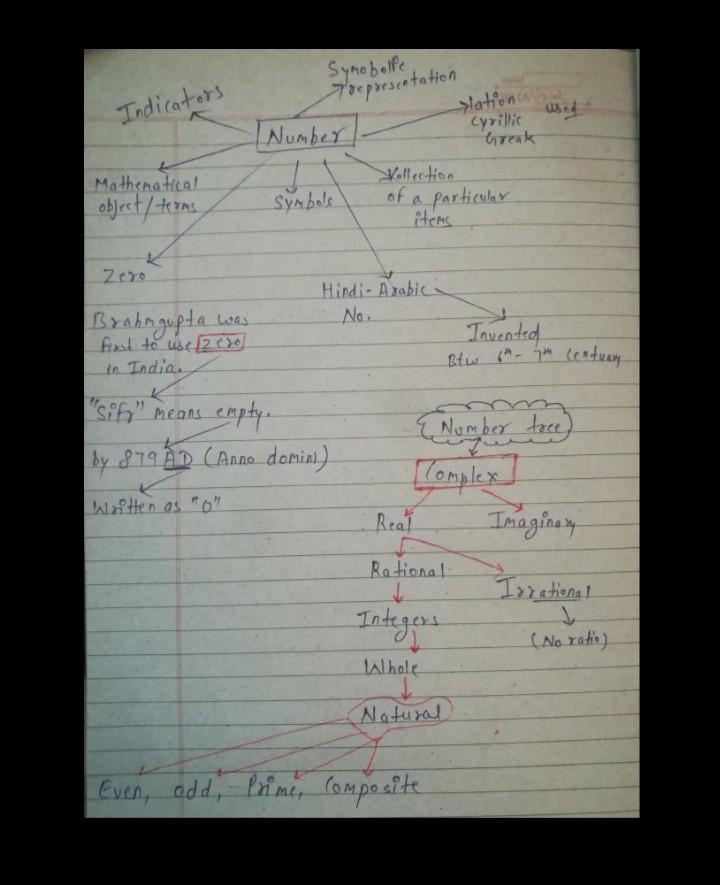 Symobolic
representation
Indicators
lation used
Cyrillic
Greak
Number
Mathematical
object/terms
Symbols
Kollection
of a particular
items
Zero
Hindi-Arabic
No.
Brahmgupta was
first to use zero
in India.
Invented
Btw 6th - 7th Centuary
"Sifr" means empty.
by 879 AD (Anno domini)
Written as "0"
Number tree
Complex
Real
Imaginary
Rational
Irrational
Integers
(No ratio)
Whole
Natural
Even, odd, Prime, Composite